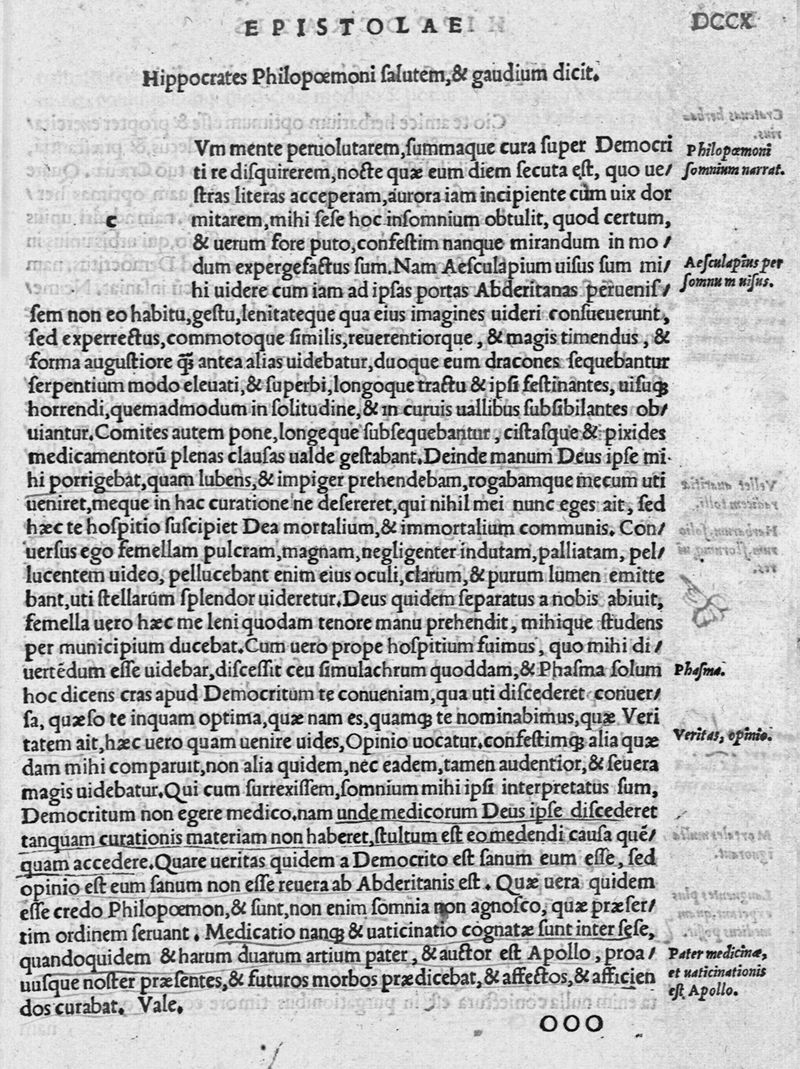 EPISTOLAE
DCCX
Hippocrates Philopœmoni ſalutem,& gaudium dicit.
c
Vm mente peruolutarem,ſummaque cura ſuper Democri
ti re diſquirerem,nocte quæ eum diem ſecuta eſt, quo ue/
ſtras literas acceperam,aurora iam incipiente cùm uix dor
mitarem,mihi ſeſe hoc inſomnium obtulit, quod certum,
& uerum fore puto,confeſtim nanque mirandum in mo/
dum expergefactus ſum.Nam Aeſculapium uiſus ſum mi/
hi uidere cum iam ad ipſas portas Abderitanas perueniſ/
ſem non eo habitu,geſtu,lenitateque qua eius imagines uideri conſueuerunt,
ſed experrectus,commotoque ſimilis,reuerentiorque, & magis timendus, &
forma auguſtiore q̃ antea alias uidebatur,duoque eum dracones ſequebantur
ſerpentium modo eleuati,& ſuperbi,longoque tractu & ipſi feſtinantes, uiſuq;
horrendi,quemadmodum in ſolitudine,& in curuis uallibus ſubſibilantes ob/
uiantur.Comites autem pone,longeque ſubſequebantur, ciſtaſque & pixides
medicamentorũ plenas clauſas ualde geſtabant.Deinde manum Deus ipſe mi-
hi porrigebat,quam lubens,& impiger prehendebam,rogabamque mecum uti
ueniret,meque in hac curatione ne deſereret,qui nihil mei nunc eges ait, ſed
hæc te hoſpitio ſuſcipiet Dea mortalium,& immortalium communis. Con/
uerſus ego femellam pulcram,magnam,negligenter indutam,palliatam, pel/
lucentem uideo, pellucebant enim eius oculi,clarum,& purum lumen emitte
bant,uti ſtellarum ſplendor uideretur.Deus quidem ſeparatus a nobis abiuit,
femella uero hæc me leni quodam tenore manu prehendit, mihique ſtudens
per municipium ducebat.Cum uero prope hoſpitium fuimus, quo mihi di/
uertẽdum eſſe uidebar,diſceſſit ceu ſimulachrum quoddam,& Phaſma ſolum
hoc dicens cras apud Democritum te conueniam,qua uti diſcederet conuer/
ſa, quæſo te inquam optima,quæ nam es,quamq; te nominabimus,quæ Veri
tatem ait,hæc uero quam uenire uides,Opinio uocatur.confeſtimq; alia quæ
dam mihi comparuit,non alia quidem,nec eadem,tamen audentior,& ſeuera
magis uidebatur.Qui cum ſurrexiſſem,ſomnium mihi ipſi interpretatus ſum,
Democritum non egere medico.nam unde medicorum Deus ipſe diſcederet
tanquam curationis materiam non haberet,ſtultum eſt eo medendi cauſa quẽ/
quam accedere.Quare ueritas quidem a Democrito eſt ſanum eum eſſe, ſed
opinio eſt eum ſanum non eſſe reuera ab Abderitanis eſt. Quæ uera quidem
eſſe credo Philopœmon,& ſunt,non enim ſomnia non agnoſco, quæ præſer/
tim ordinem ſeruant. Medicatio nanq; & uaticinatio cognatæ ſunt inter ſeſe,
quandoquidem & harum duarum artium pater, & auctor eſt Apollo, proa/
uuſque noſter præſentes,& futuros morbos prædicebat,& affectos,& afficien
dos curabat. Vale.
OOO
Philopœmoni
ſomnium narrat.
Aeſculapius per
ſomnum uiſus.
Phaſma.
Veritas, opinio.
Pater medicinæ,
et uaticinationis
eſt Apollo.